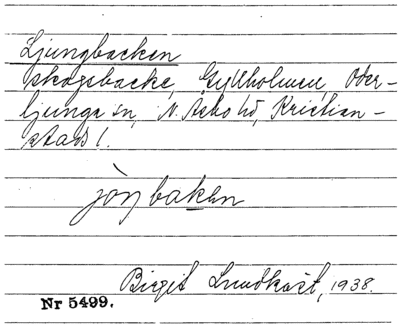 Ljungbacken
skogsbacke, Gyllholmen, Oder-
ljunga sn, N. Åsbo hd, Kristian-
stads l.
jòŋbakən
Birgit Lundkvist, 1938.
Nr 5499.